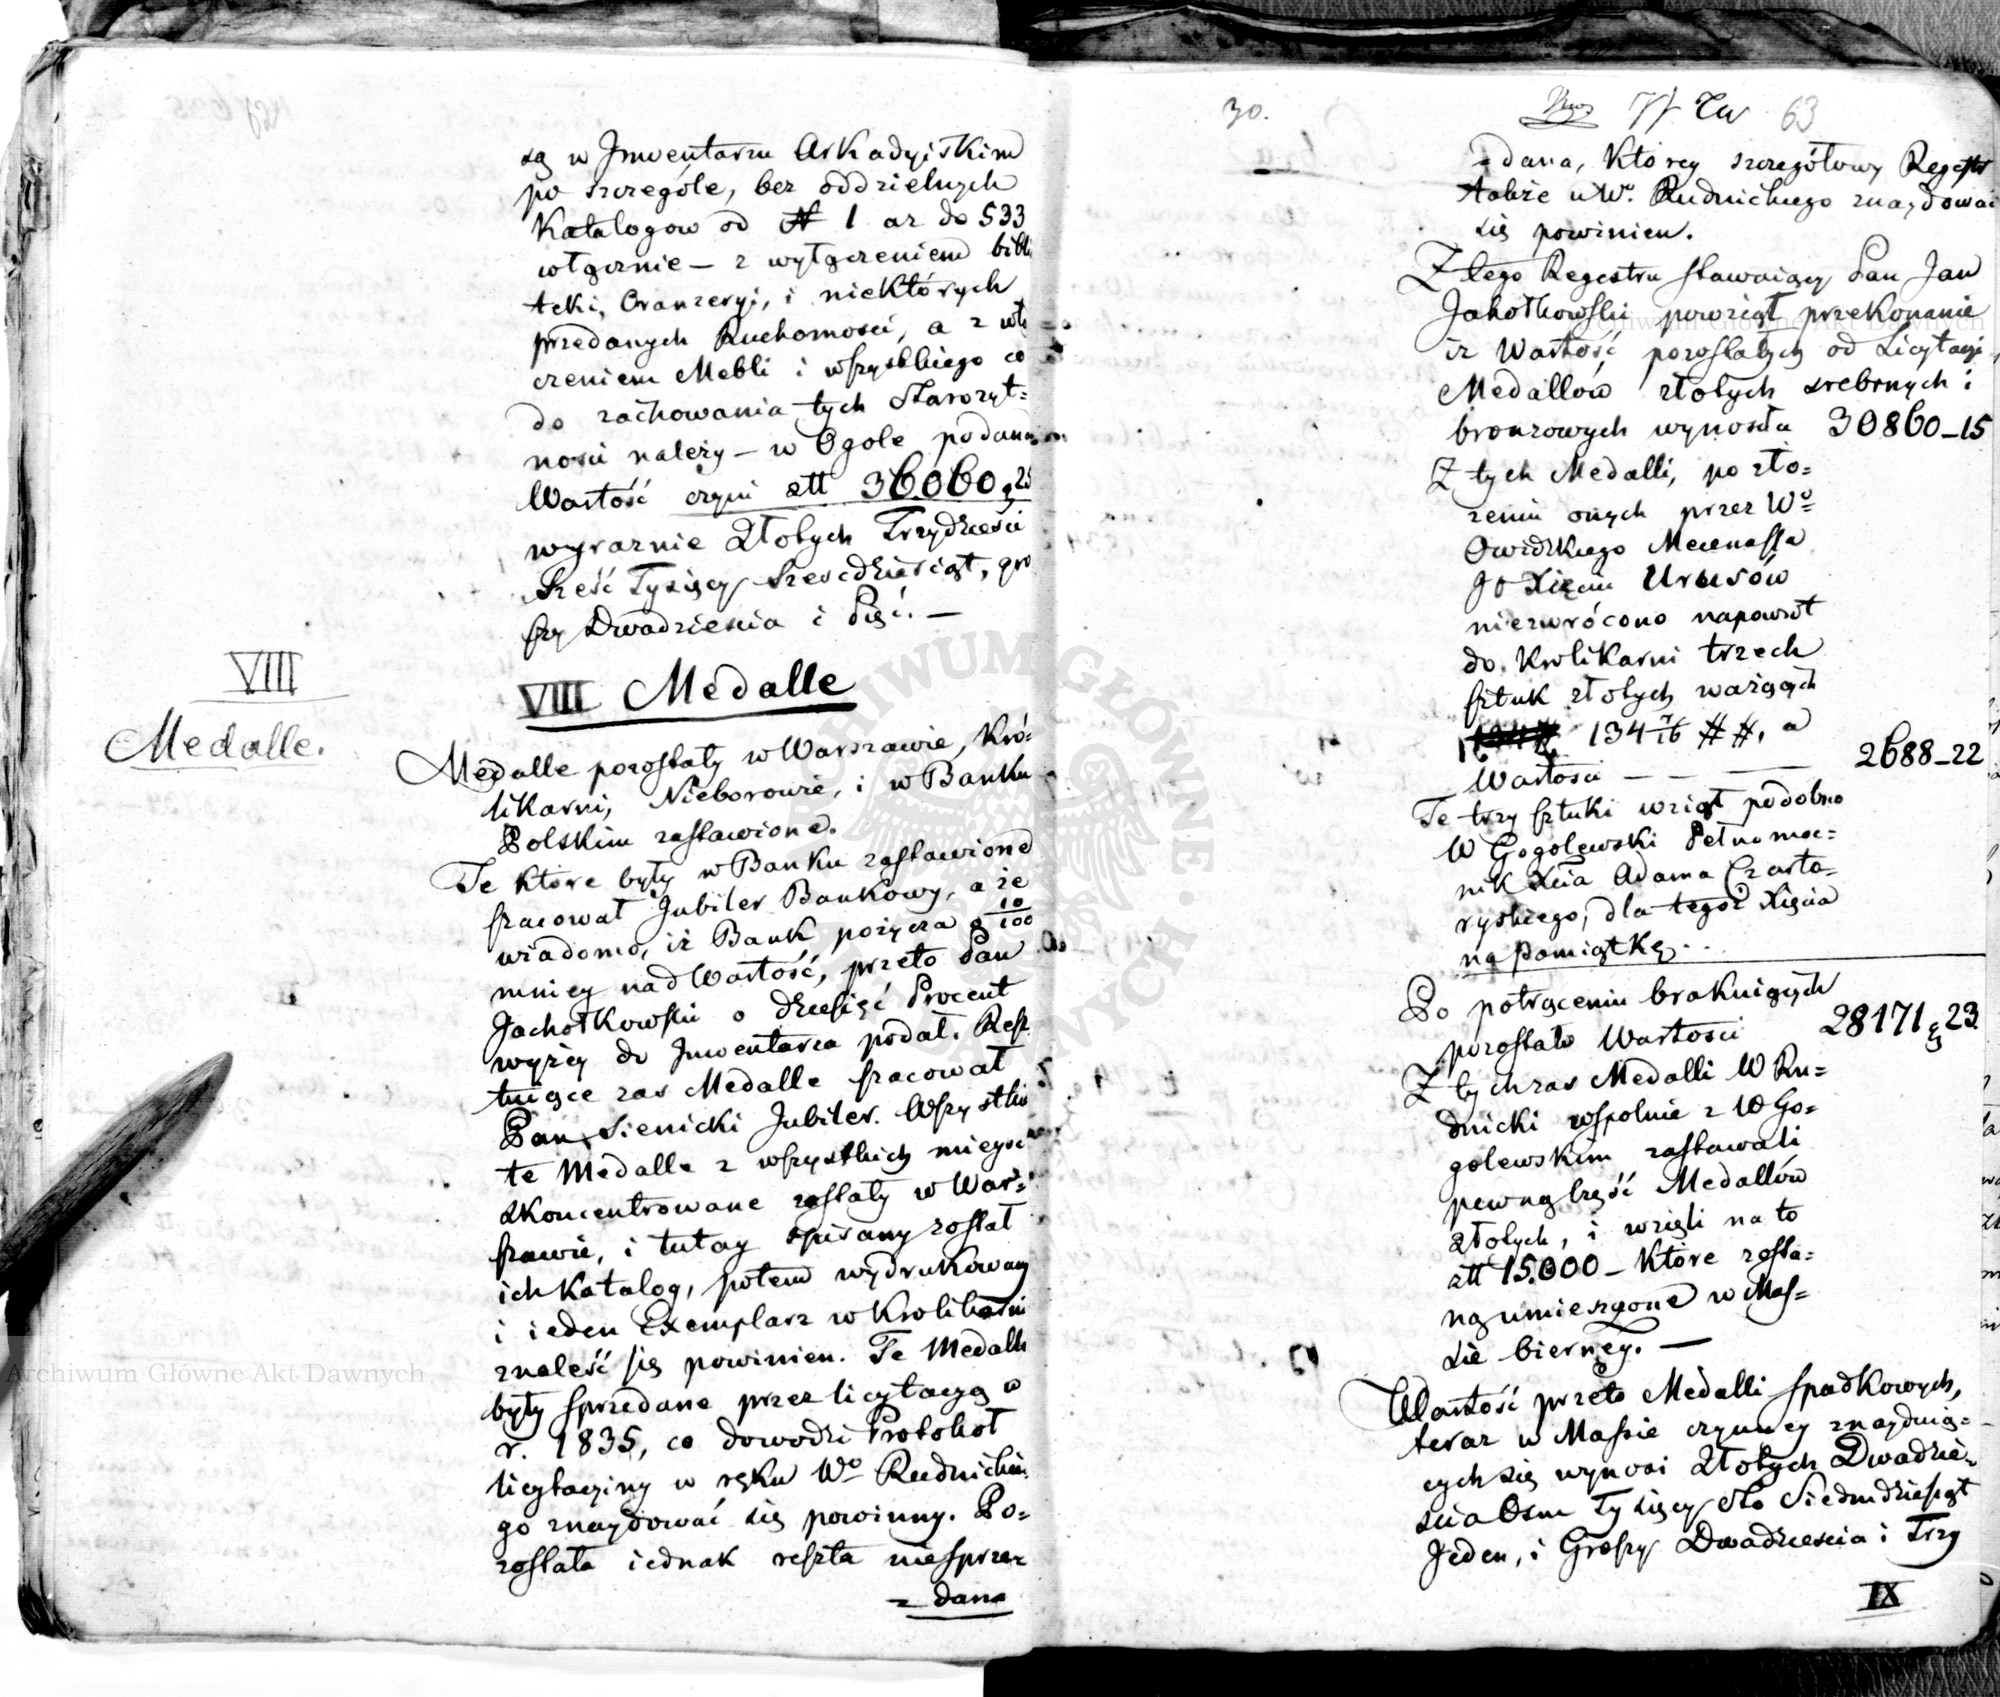 są w Inwentarzu Arkadyiskim
po szczególe, bez oddzielnych
Katalogow od N 1 az do 533
włącznie – z wyłączeniem bibli
teki, Oranżeryi, i niektórych
przedanych Ruchomości, a z włą
czeniem Mebli i wszystkiego co
do zachowania tych Starożyt=
ności należy – w Ogole podana
Wartość czyni złł 36060 g 25
wyraznie Złotych Trzydzieści
Sześć Tysięcy Sześcdziesiąt, gro
szy Dwadzieścia i Pięć. –
VIII
Medalle.
VIII Medalle
Medalle pozostały w Warszawie, Kró=
likarni, Nieborowie, i w Banku
Polskim zastawione.
Te które były w Banku zastawione
szacował Jubiler Bankowy, a że
wiadomo, iż Bank pożycza g 10/100
mniey nad Wartość, przeto Pan
Jachołkowski o dziesięć Procent
wyżey do Inwentarza podał. Resz
tuiące zas Medalle szacował
Pan Sienicki Jubiler. Wszystkie
te Medalle z wszystkich mieysc
skoncentrowane zostały w War=
szawie, i tutay spisany został
ich Katalog, potem wydrukowany
i ieden Exemplarz w Krolikarni
znaleść się powinien. Te Medalle
były sprzedane przez licytacyą w
r. 1835, co dowodzi Protokoł
licytacyiny w ręku Wo Rudnickie
go znaydować się powinny. Po=
została iednak reszta niesprze
= dana
30.
77 63
= dana, którey szczegółowy Regestr
także u Wo. Rudnickiego znaydować
się powinien.
Z tego Regestru stawaiący Pan Jan
Jakołkowski powziął przekonanie
iz Wartość pozostałych od Licytacyi
Medallów złotych srebrnych i
bronzowych wynosiła 30860 – 15
Z tych Medalli, po zło=
zeniu onych przez Wo=
Owidzkiego Mecenassa
JO Xięciu Urusów
niezwrócono napowrót
do Krolikarni trzech
sztuk złotych ważących
134 7/16 ##, a
Wartości – – – 2688 – 22
Te trzy sztuki wziął podobno
W Gogolewski Pełnomoc=
nik Xcia Adama Czarto=
ryskiego, dla tegoż Xięcia
na pamiątkę..
Po potrąceniu brakuiących
pozostało Wartości 28171 g 23
Z tych zas Medalli W Ru=
dnicki wspolnie z W Go=
golewskim zastawali
pewną część Medallów
złotych, i wzieli na to
złł 15.000 – które zosta=
ną umieszczone w Mas=
sie bierney. –
Wartość przeto Medalli spadkowych,
teraz w Massie czynney znayduią=
cych się wynosi Złotych Dwadzie=
scia Osm Tysięcy Sto Siedmdziesiąt
Jeden, i Groszy Dwadzieścia i Trzy
IX
Archiwum Główne Akt Dawnych
Archiwum Główne Akt Dawnych
ARCHIWUM GŁÓWNE AKT DAWNYCH